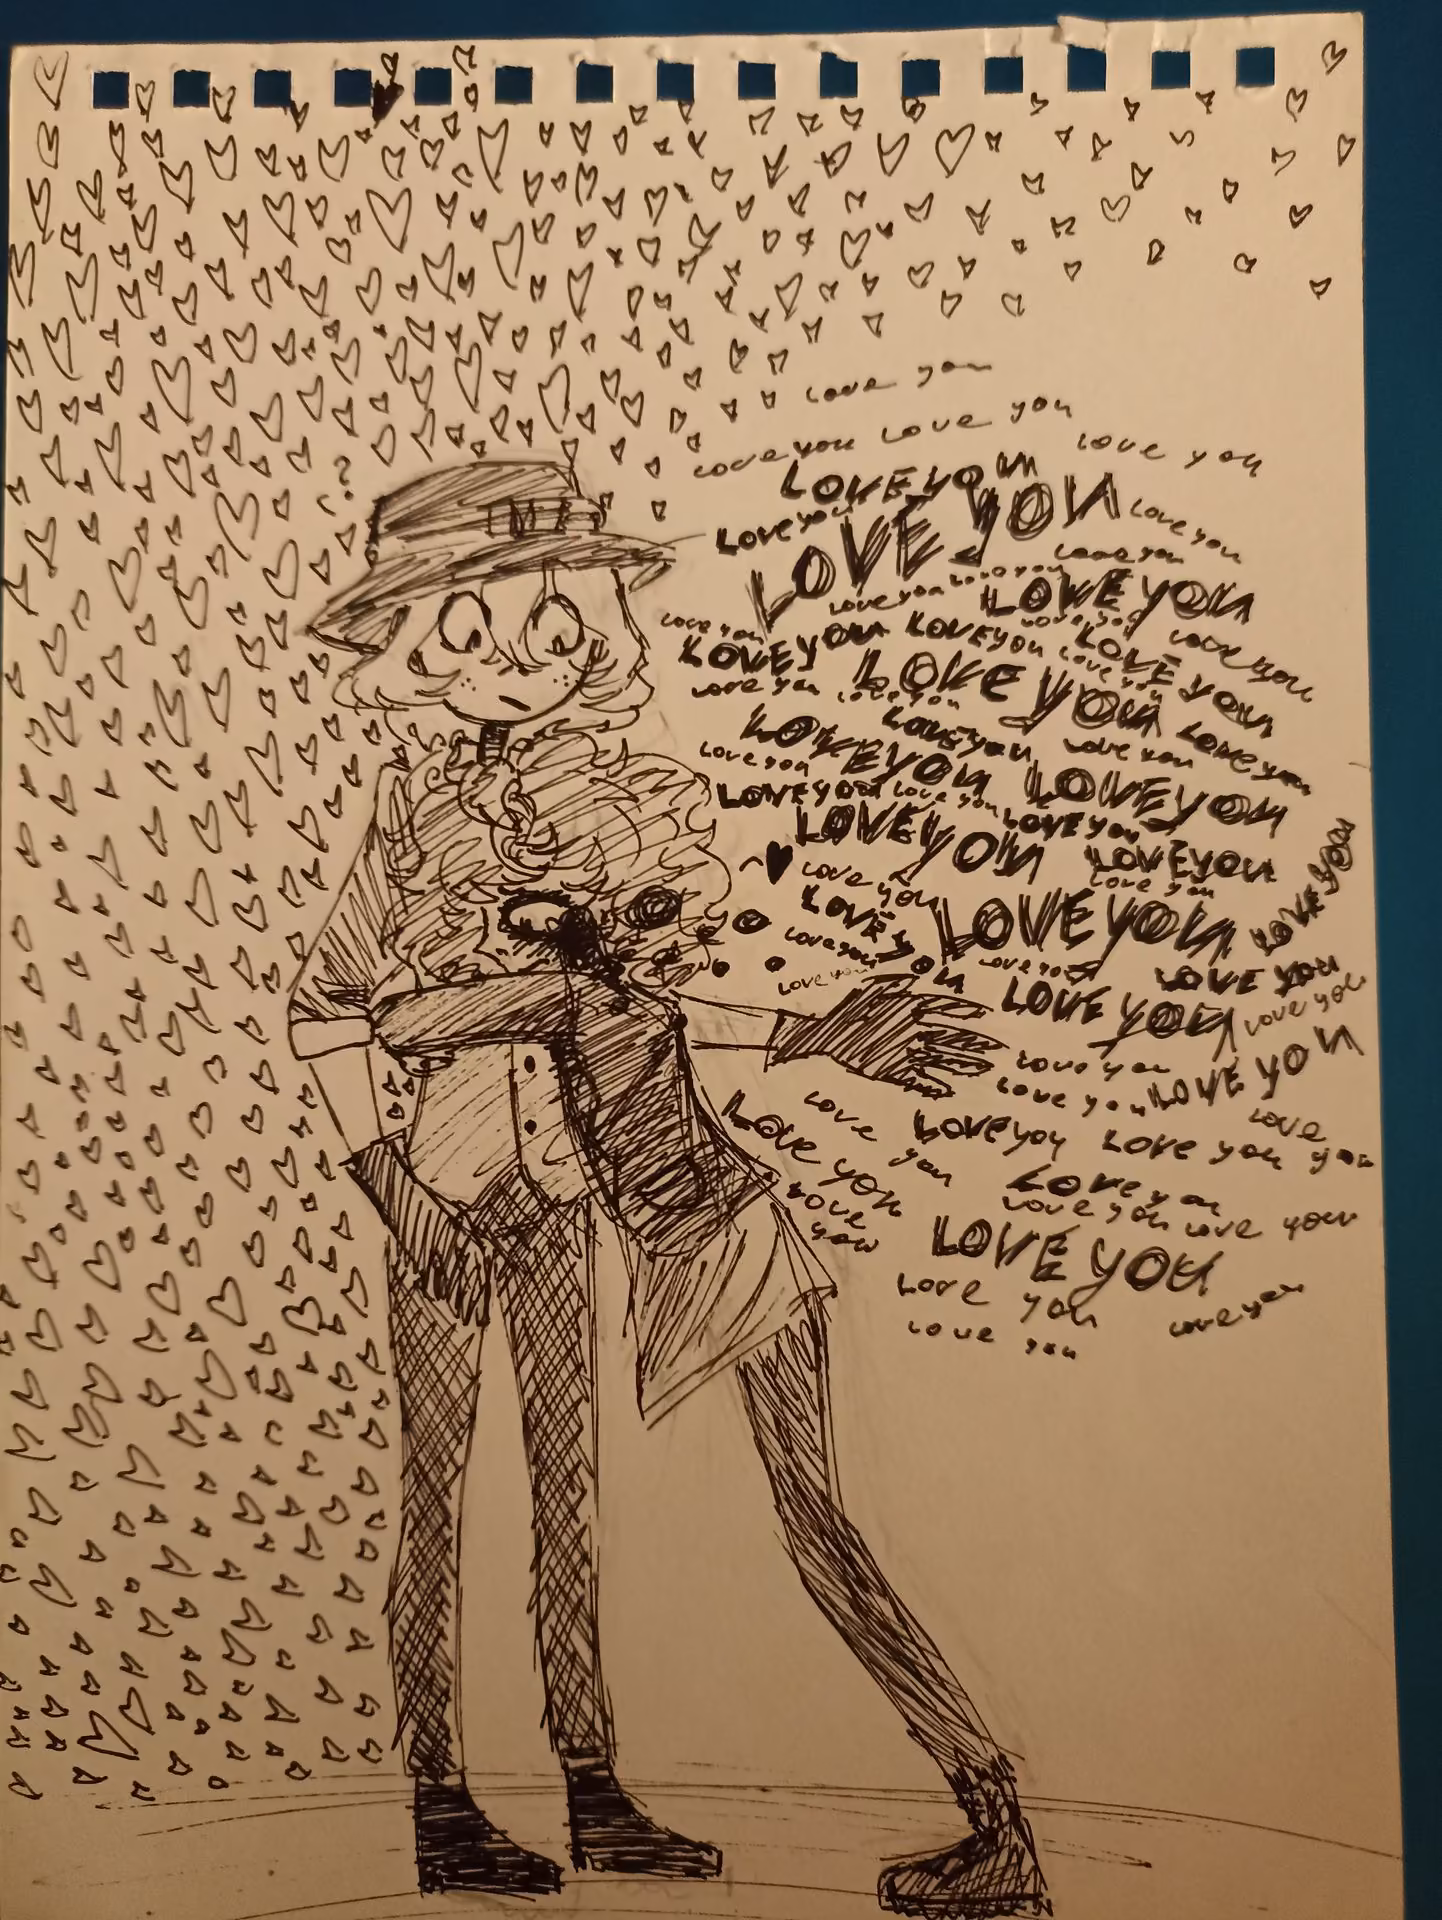 ?
Love you
Love you Love you
Love you
LOVE you
LOVE YOU
Love you
Love you
Love you
Love you Love you
LOVE you
Love you
Love you
LOVE YOU
LOVE you
Love you
LOVE you
Love you
LOVE YOU
Love you
Love you
LOVE YOU
Love you
Love you
Love you
Love you
LOVE YOU
LOVE YOU
LOVE you
Love you
LOVE you
LOVE YOU
LOVE you
Love you
LOVE YOU
Love you
LOVE you
LOVE YOU
Love you
Love you
LOVE you
Love you
LOVE YOU
Love you
Love you
LOVE YOU
Love you
Love you
Love you
Love you
Love you
Love you
Love you
Love you
Love you
Love you
LOVE YOU
Love you
Love you
Love you